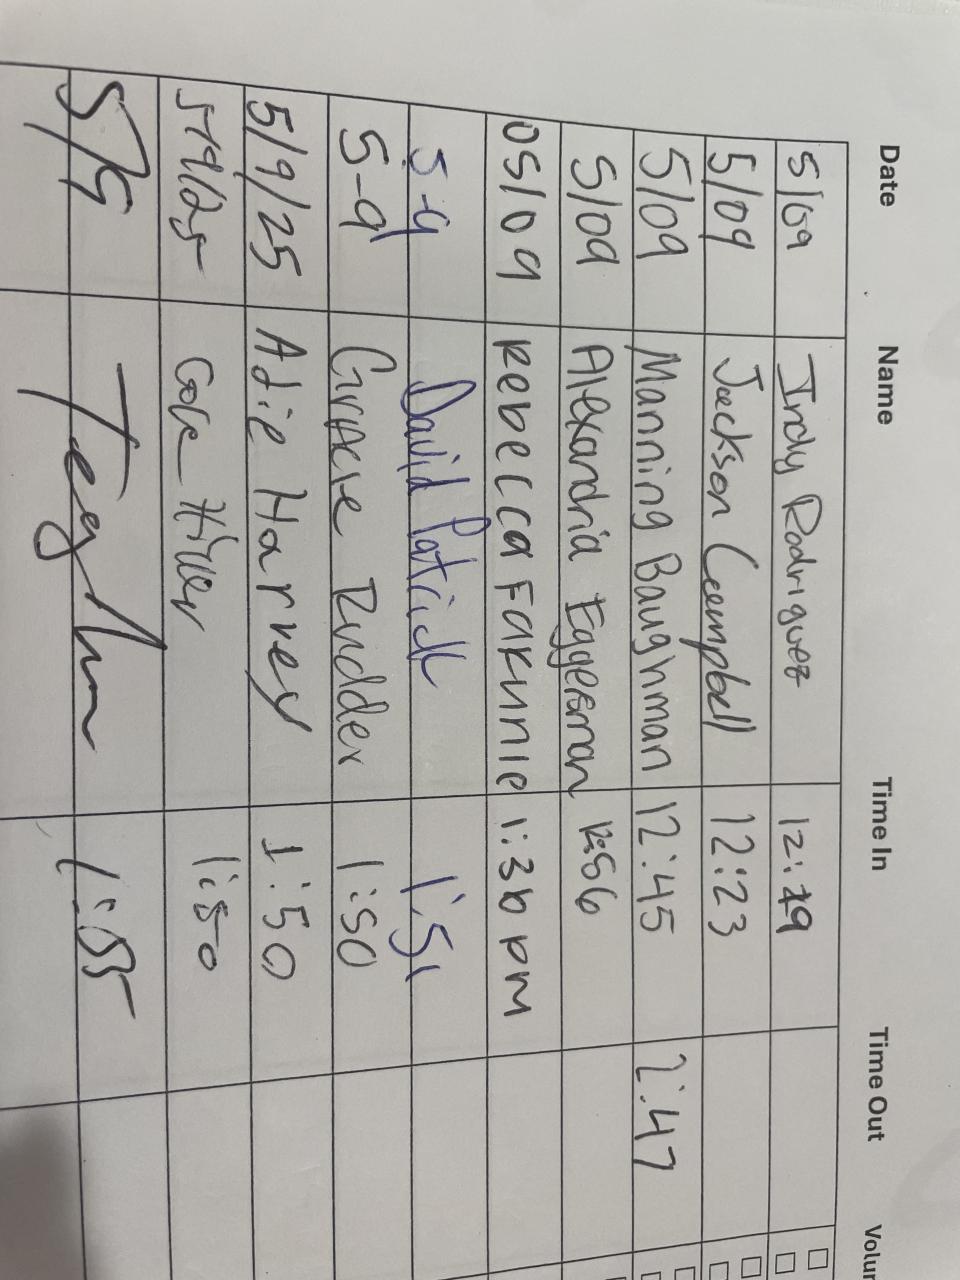 Date Name Time In Time Out
5/09 Indy Rodriguez 12:19
5/09 Jackson Campbell 12:23
5/09 Manning Baughman 12:45 2:47
5/09 Alexandria Eggesman 12:56
05/09 Rebecca Fakunle 1:30 pm
5-9 David Patrick 1:51
5-9 Gracie Rudder 1:50
5/9/25 Adie Harvey 1:50
5/9/25 1:50
5/9 1:55